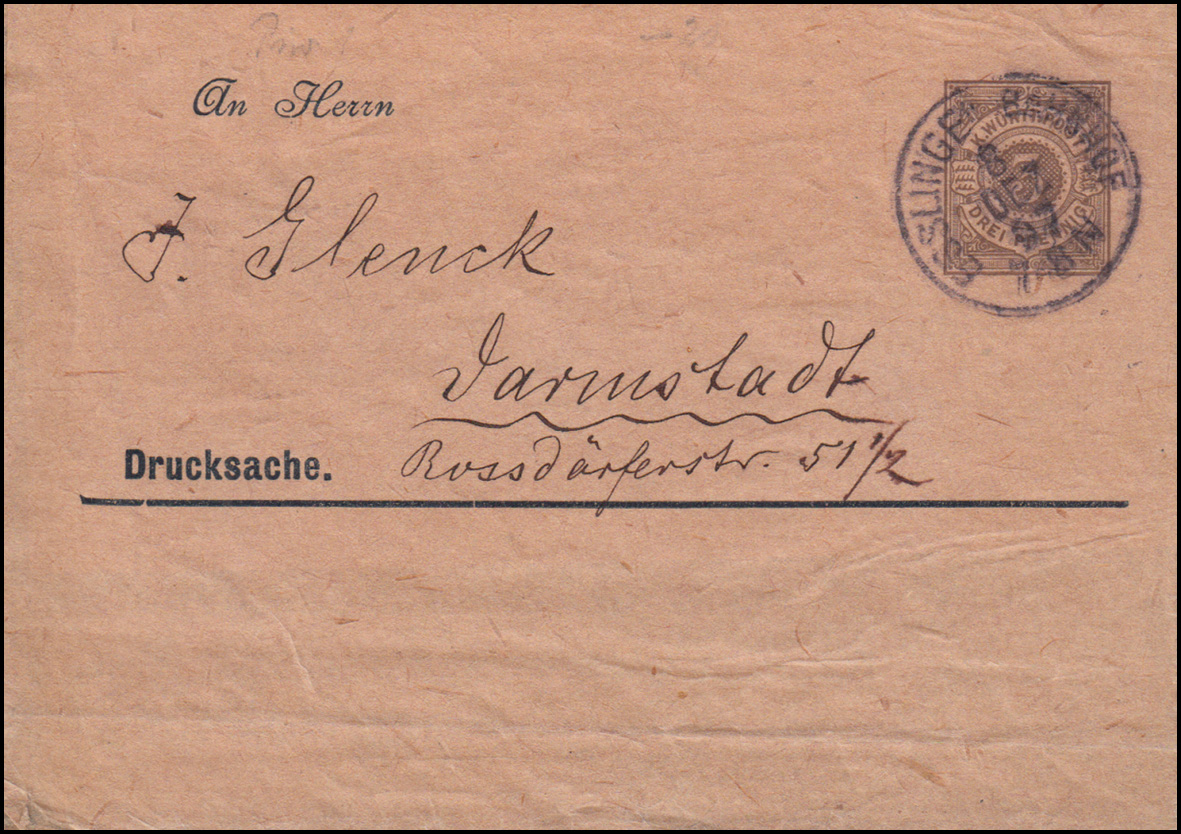 An Herrn
K. WÜRTT. POST
3
DREI PFENNIG
J. Glenck
Darmstadt
Drucksache. Rossdörferstr. 51 1/2